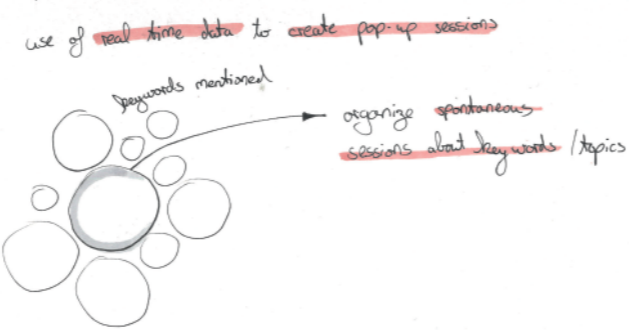 use of real time data to create pop-up sessions
keywords mentioned
organize spontaneous
sessions about keywords / topics